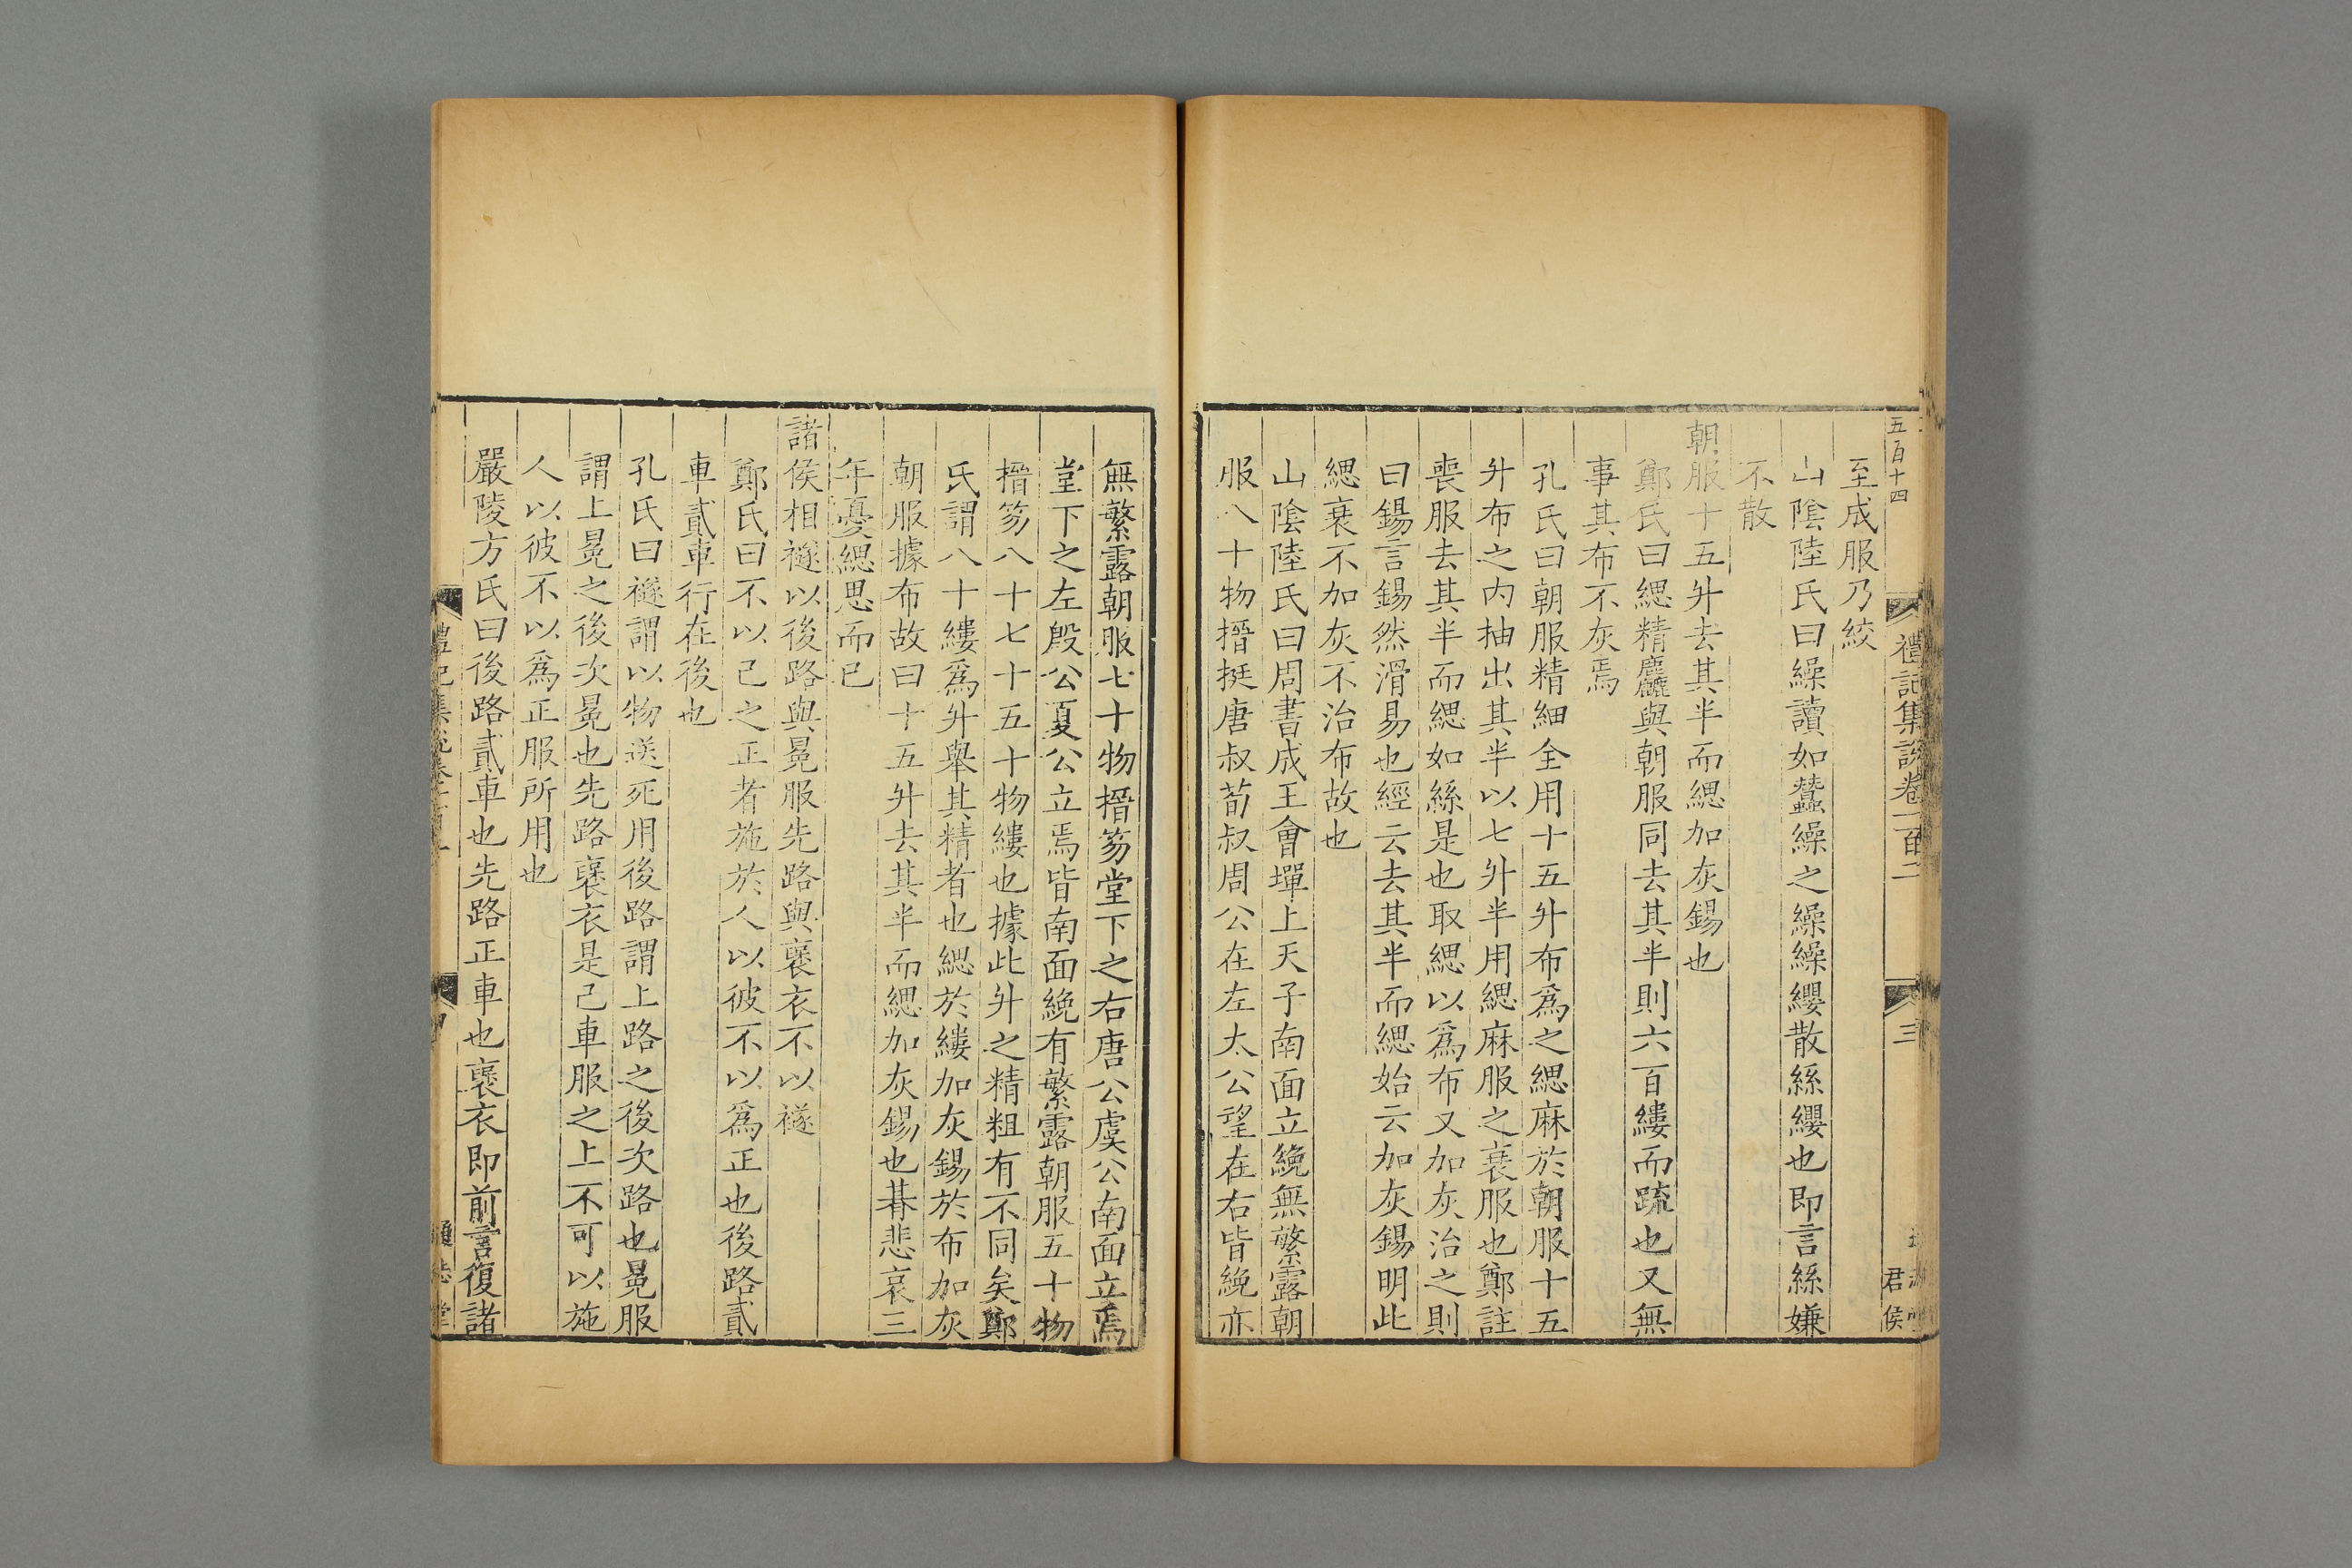 五百十四
禮記集說卷一百二
三
君侯
至成服乃絞
山陰陸氏曰繰讀如蠶繰之繰繰纓散絲纓也即言絲嫌
不散
朝服十五升去其半而緦加灰錫也
鄭氏曰緦精麤與朝服同去其半則六百縷而疏也又無
事其布不灰焉
孔氏曰朝服精細全用十五升布爲之緦麻於朝服十五
升布之内抽出其半以七升半用緦麻服之衰服也鄭註
喪服去其半而緦如絲是也取緦以爲布又加灰治之則
曰錫言錫然滑易也經云去其半而緦始云加灰錫明此
緦衰不加灰不治布故也
山陰陸氏曰周書成王會墠上天子南面立絻無繁露朝
服八十物搢挺唐叔荀叔周公在左太公望在右皆絻亦
無繁露朝服七十物搢笏堂下之右唐公虞公南面立焉
堂下之左殷公夏公立焉皆南面絻有繁露朝服五十物
搢笏八十七十五十物縷也據此升之精粗有不同矣鄭
氏謂八十縷爲升舉其精者也緦於縷加灰錫於布加灰
朝服據布故曰十五升去其半而緦加灰錫也朞悲哀三
年憂緦思而已
諸侯相襚以後路與冕服先路與襃衣不以襚
鄭氏曰不以己之正者施於人以彼不以爲正也後路貳
車貳車行在後也
孔氏曰襚謂以物送死用後路謂上路之後次路也冕服
謂上冕之後次冕也先路襃衣是己車服之上不可以施
人以彼不以爲正服所用也
嚴陵方氏曰後路貳車也先路正車也襃衣即前言復諸
禮記集說卷一百二
四